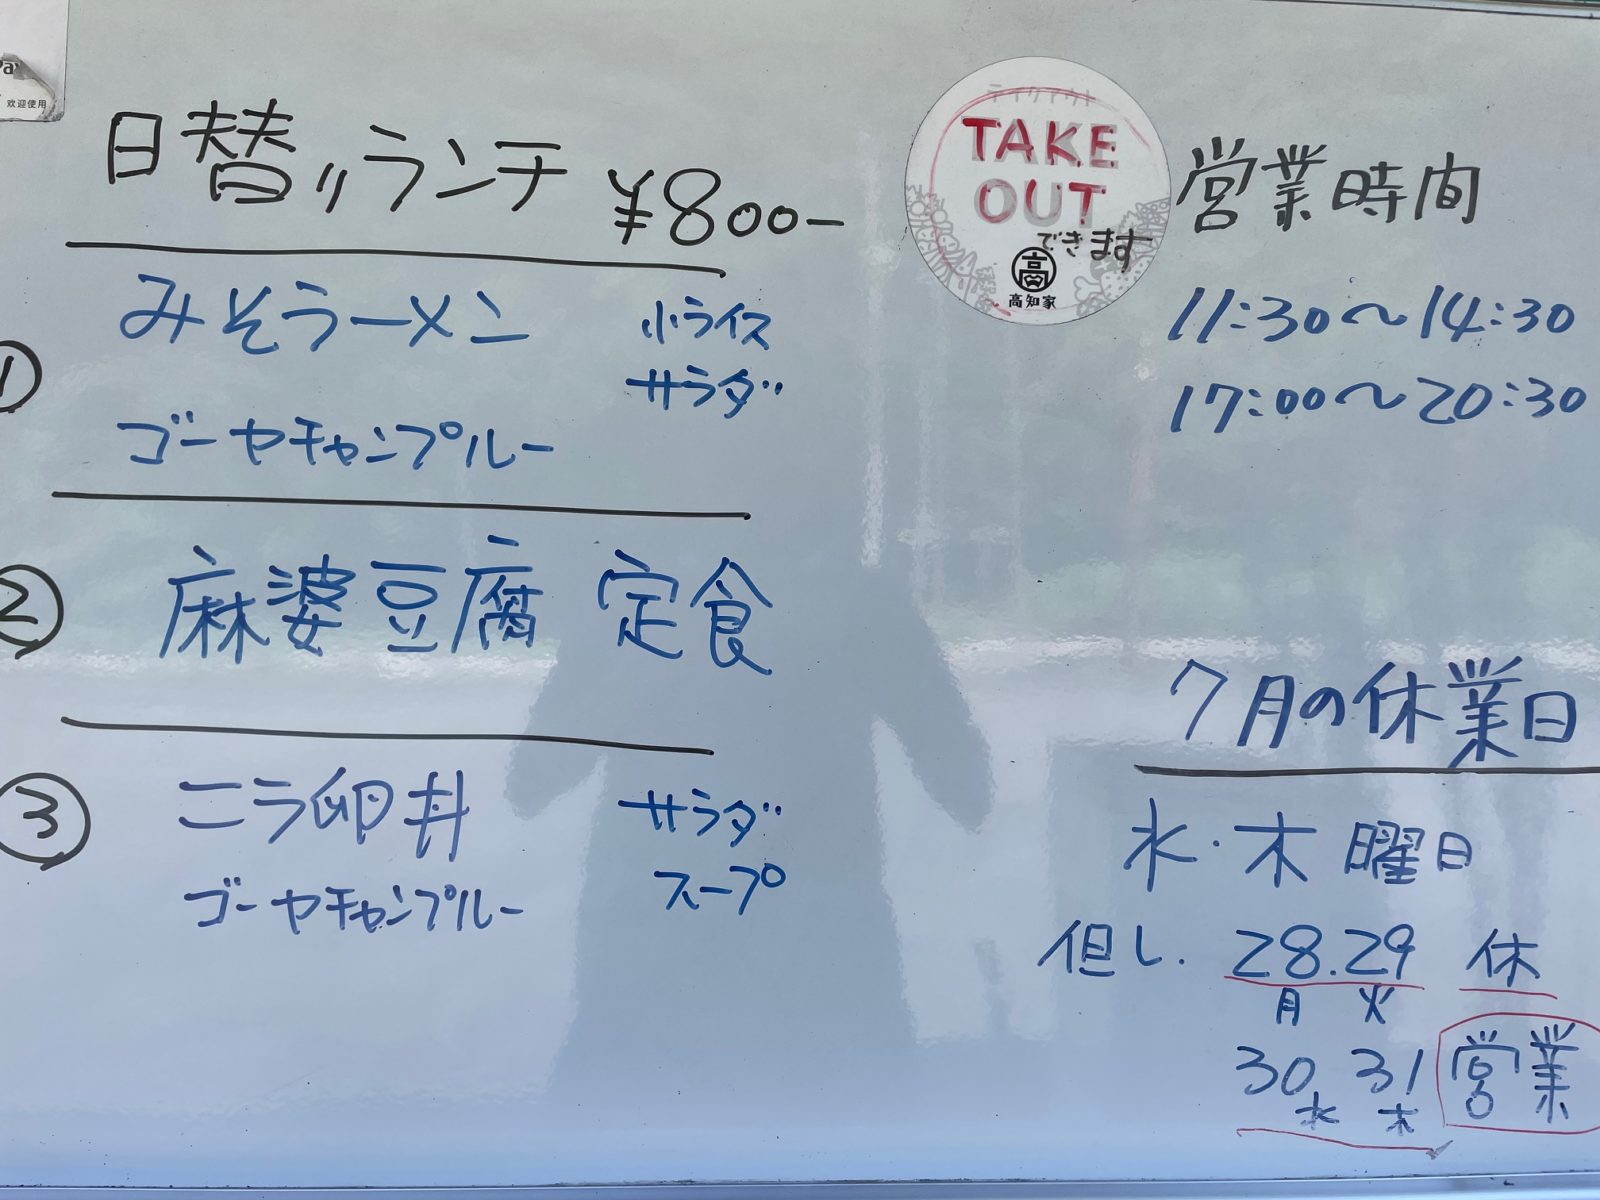 欢迎使用
日替りランチ ¥800-
①
みそラーメン 小ライス
サラダ
ゴーヤチャンプルー
②
麻婆豆腐 定食
③
ニラ卵丼 サラダ
ゴーヤチャンプルー スープ
テイクアウト
TAKE
OUT
できます
高
高知家
営業時間
11:30〜14:30
17:00〜20:30
7月の休業日
水・木曜日
但し. 28.29 休
月 火
30 31 営業
水 木